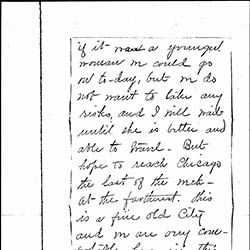 if it was a younger
woman we could go
on to-day, but we do
not want to take any
risks, and I will wait
until she is better and
able to travel. But
hope to reach Chicago
the last of the week
at the farthest. This
is a fine old City
and we are very com-